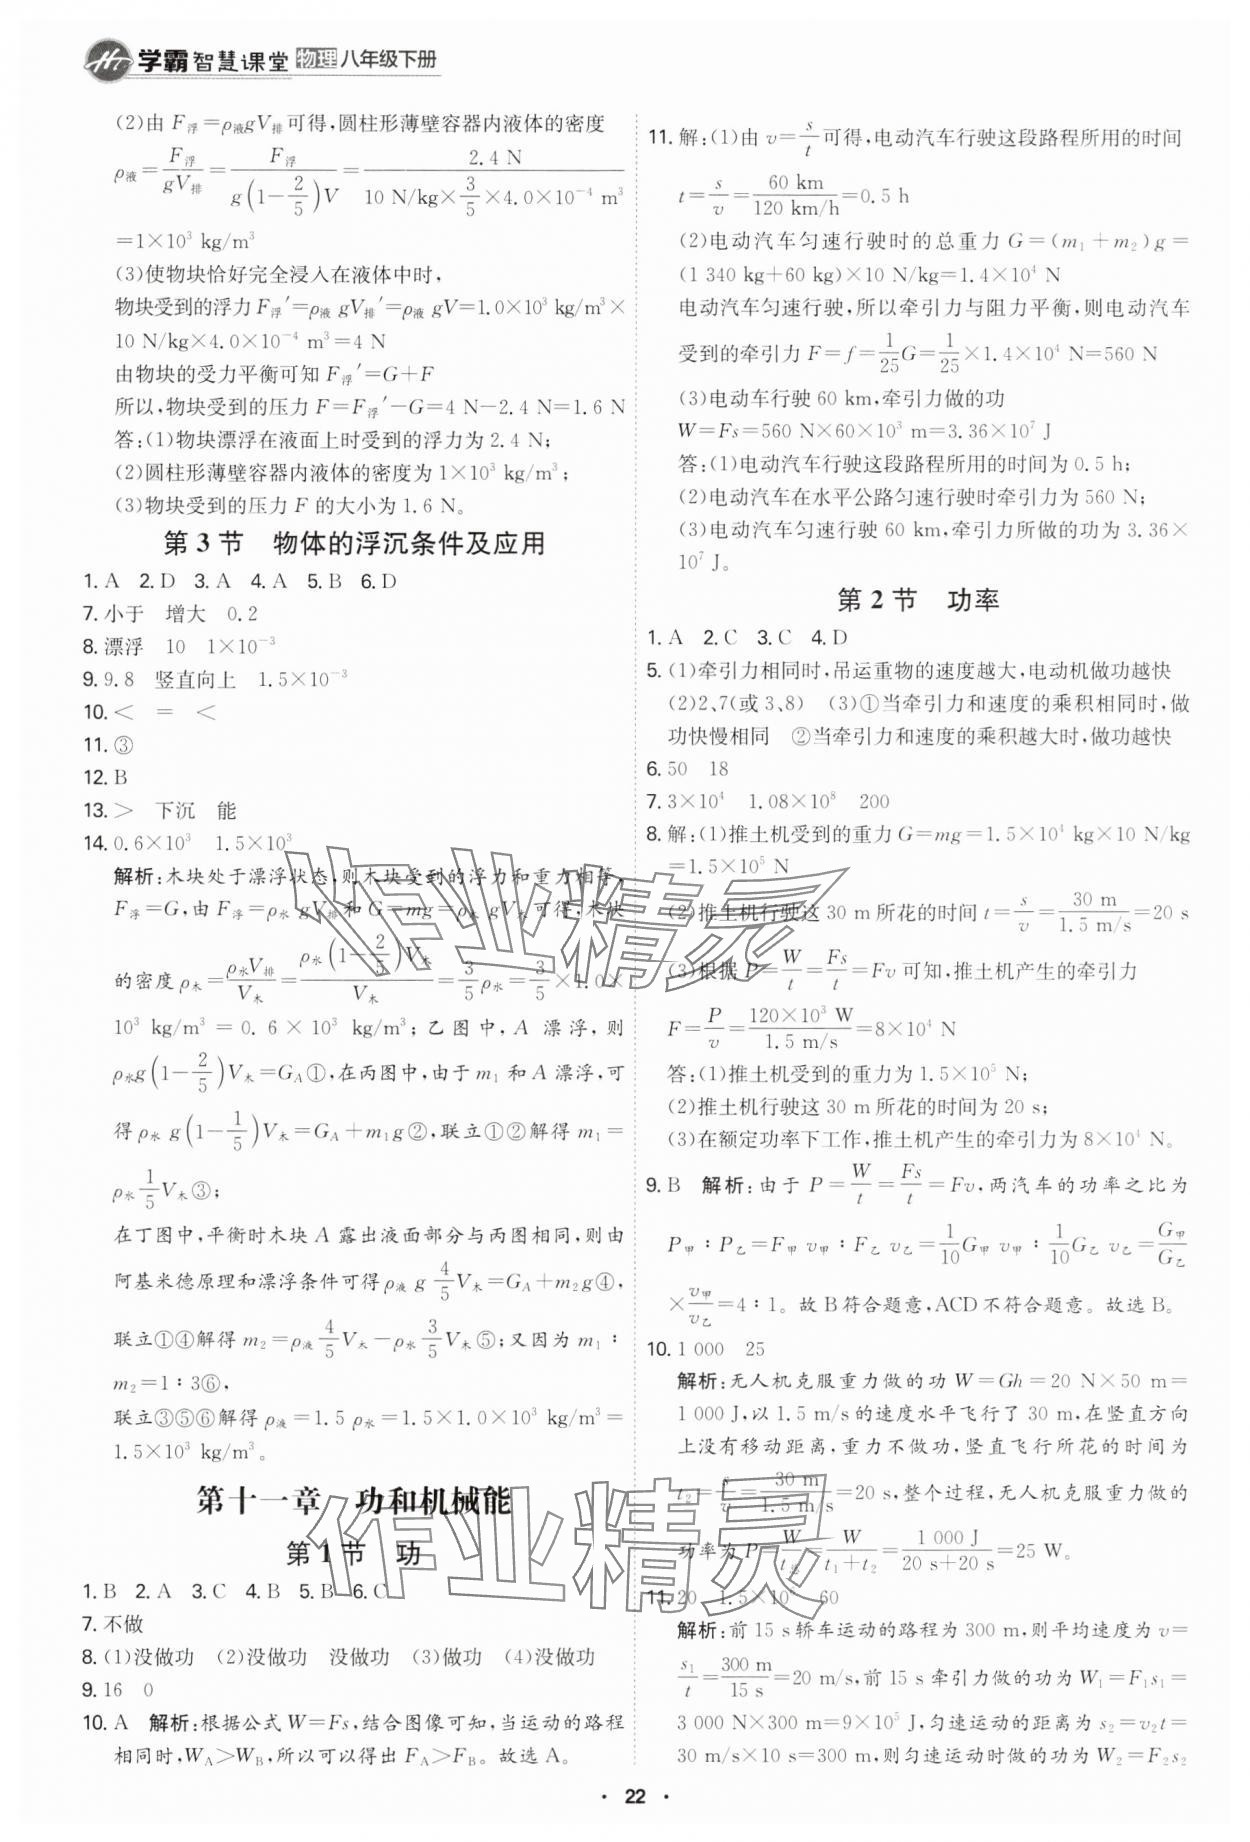 学霸智慧课堂 物理 八年级下册
(2)由 F浮=ρ液gV排可得,圆柱形薄壁容器内液体的密度
ρ液=F浮/gV排=F浮/g(1-2/5)V=2.4 N/10 N/kg×3/5×4.0×10⁻⁴ m³
=1×10³ kg/m³
(3)使物块恰好完全浸入在液体中时,
物块受到的浮力 F浮′=ρ液 gV排′=ρ液 gV=1.0×10³ kg/m³×
10 N/kg×4.0×10⁻⁴ m³=4 N
由物块的受力平衡可知 F浮′=G+F
所以,物块受到的压力 F=F浮′-G=4 N-2.4 N=1.6 N
答:(1)物块漂浮在液面上时受到的浮力为 2.4 N;
(2)圆柱形薄壁容器内液体的密度为 1×10³ kg/m³;
(3)物块受到的压力 F 的大小为 1.6 N。
第 3 节 物体的浮沉条件及应用
1. A 2. D 3. A 4. A 5. B 6. D
7. 小于 增大 0.2
8. 漂浮 10 1×10⁻³
9. 9.8 竖直向上 1.5×10⁻³
10. < = <
11. ③
12. B
13. > 下沉 能
14. 0.6×10³ 1.5×10³
解析:木块处于漂浮状态,则木块受到的浮力和重力相等,
F浮=G,由 F浮=ρ水 gV排和 G=mg=ρ木 gV木可得,木块
的密度 ρ木=ρ水V排/V木=ρ水(1-2/5)V木/V木=3/5ρ水=3/5×1.0×
10³ kg/m³ = 0.6×10³ kg/m³;乙图中,A 漂浮,则
ρ水g(1-2/5)V木=GA①,在丙图中,由于 m₁ 和 A 漂浮,可
得 ρ水 g(1-1/5)V木=GA+m₁g②,联立①②解得 m₁=
ρ水1/5V木③;
在丁图中,平衡时木块 A 露出液面部分与丙图相同,则由
阿基米德原理和漂浮条件可得 ρ液 g 4/5V木=GA+m₂g④,
联立①④解得 m₂=ρ液4/5V木-ρ水3/5V木⑤;又因为 m₁∶
m₂=1∶3⑥,
联立③⑤⑥解得 ρ液=1.5 ρ水=1.5×1.0×10³ kg/m³=
1.5×10³ kg/m³。
第十一章 功和机械能
第 1 节 功
1. B 2. A 3. C 4. B 5. B 6. C
7. 不做
8. (1)没做功 (2)没做功 没做功 (3)做功 (4)没做功
9. 16 0
10. A 解析:根据公式 W=Fs,结合图像可知,当运动的路程
相同时,WA>WB,所以可以得出 FA>FB。故选 A。
11. 解:(1)由 v=s/t可得,电动汽车行驶这段路程所用的时间
t=s/v=60 km/120 km/h=0.5 h
(2)电动汽车匀速行驶时的总重力 G=(m₁+m₂)g=
(1 340 kg+60 kg)×10 N/kg=1.4×10⁴ N
电动汽车匀速行驶,所以牵引力与阻力平衡,则电动汽车
受到的牵引力 F=f=1/25G=1/25×1.4×10⁴ N=560 N
(3)电动车行驶 60 km,牵引力做的功
W=Fs=560 N×60×10³ m=3.36×10⁷ J
答:(1)电动汽车行驶这段路程所用的时间为 0.5 h;
(2)电动汽车在水平公路匀速行驶时牵引力为 560 N;
(3)电动汽车匀速行驶 60 km,牵引力所做的功为 3.36×
10⁷ J。
第 2 节 功率
1. A 2. C 3. C 4. D
5. (1)牵引力相同时,吊运重物的速度越大,电动机做功越快
(2)2、7(或 3、8) (3)①当牵引力和速度的乘积相同时,做
功快慢相同 ②当牵引力和速度的乘积越大时,做功越快
6. 50 18
7. 3×10⁴ 1.08×10⁸ 200
8. 解:(1)推土机受到的重力 G=mg=1.5×10⁴ kg×10 N/kg
=1.5×10⁵ N
(2)推土机行驶这 30 m 所花的时间 t=s/v=30 m/1.5 m/s=20 s
(3)根据 P=W/t=Fs/t=Fv 可知,推土机产生的牵引力
F=P/v=120×10³ W/1.5 m/s=8×10⁴ N
答:(1)推土机受到的重力为 1.5×10⁵ N;
(2)推土机行驶这 30 m 所花的时间为 20 s;
(3)在额定功率下工作,推土机产生的牵引力为 8×10⁴ N。
9. B 解析:由于 P=W/t=Fs/t=Fv,两汽车的功率之比为
P甲∶P乙=F甲 v甲∶F乙 v乙=1/10G甲 v甲∶1/10G乙 v乙=G甲/G乙
×v甲/v乙=4∶1。故 B 符合题意,ACD 不符合题意。故选 B。
10. 1 000 25
解析:无人机克服重力做的功 W=Gh=20 N×50 m=
1 000 J,以 1.5 m/s 的速度水平飞行了 30 m,在竖直方向
上没有移动距离,重力不做功,竖直飞行所花的时间为
t₂=s/v=30 m/1.5 m/s=20 s,整个过程,无人机克服重力做的
功率为 P=W/t总=W/t₁+t₂=1 000 J/20 s+20 s=25 W。
11. 20 1.5×10⁶ 60
解析:前 15 s 轿车运动的路程为 300 m,则平均速度为 v=
s₁/t=300 m/15 s=20 m/s,前 15 s 牵引力做的功为 W₁=F₁s₁=
3 000 N×300 m=9×10⁵ J,匀速运动的距离为 s₂=v₂t=
30 m/s×10 s=300 m,则匀速运动时做的功为 W₂=F₂s₂
作业精灵
作业精灵
· 22 ·